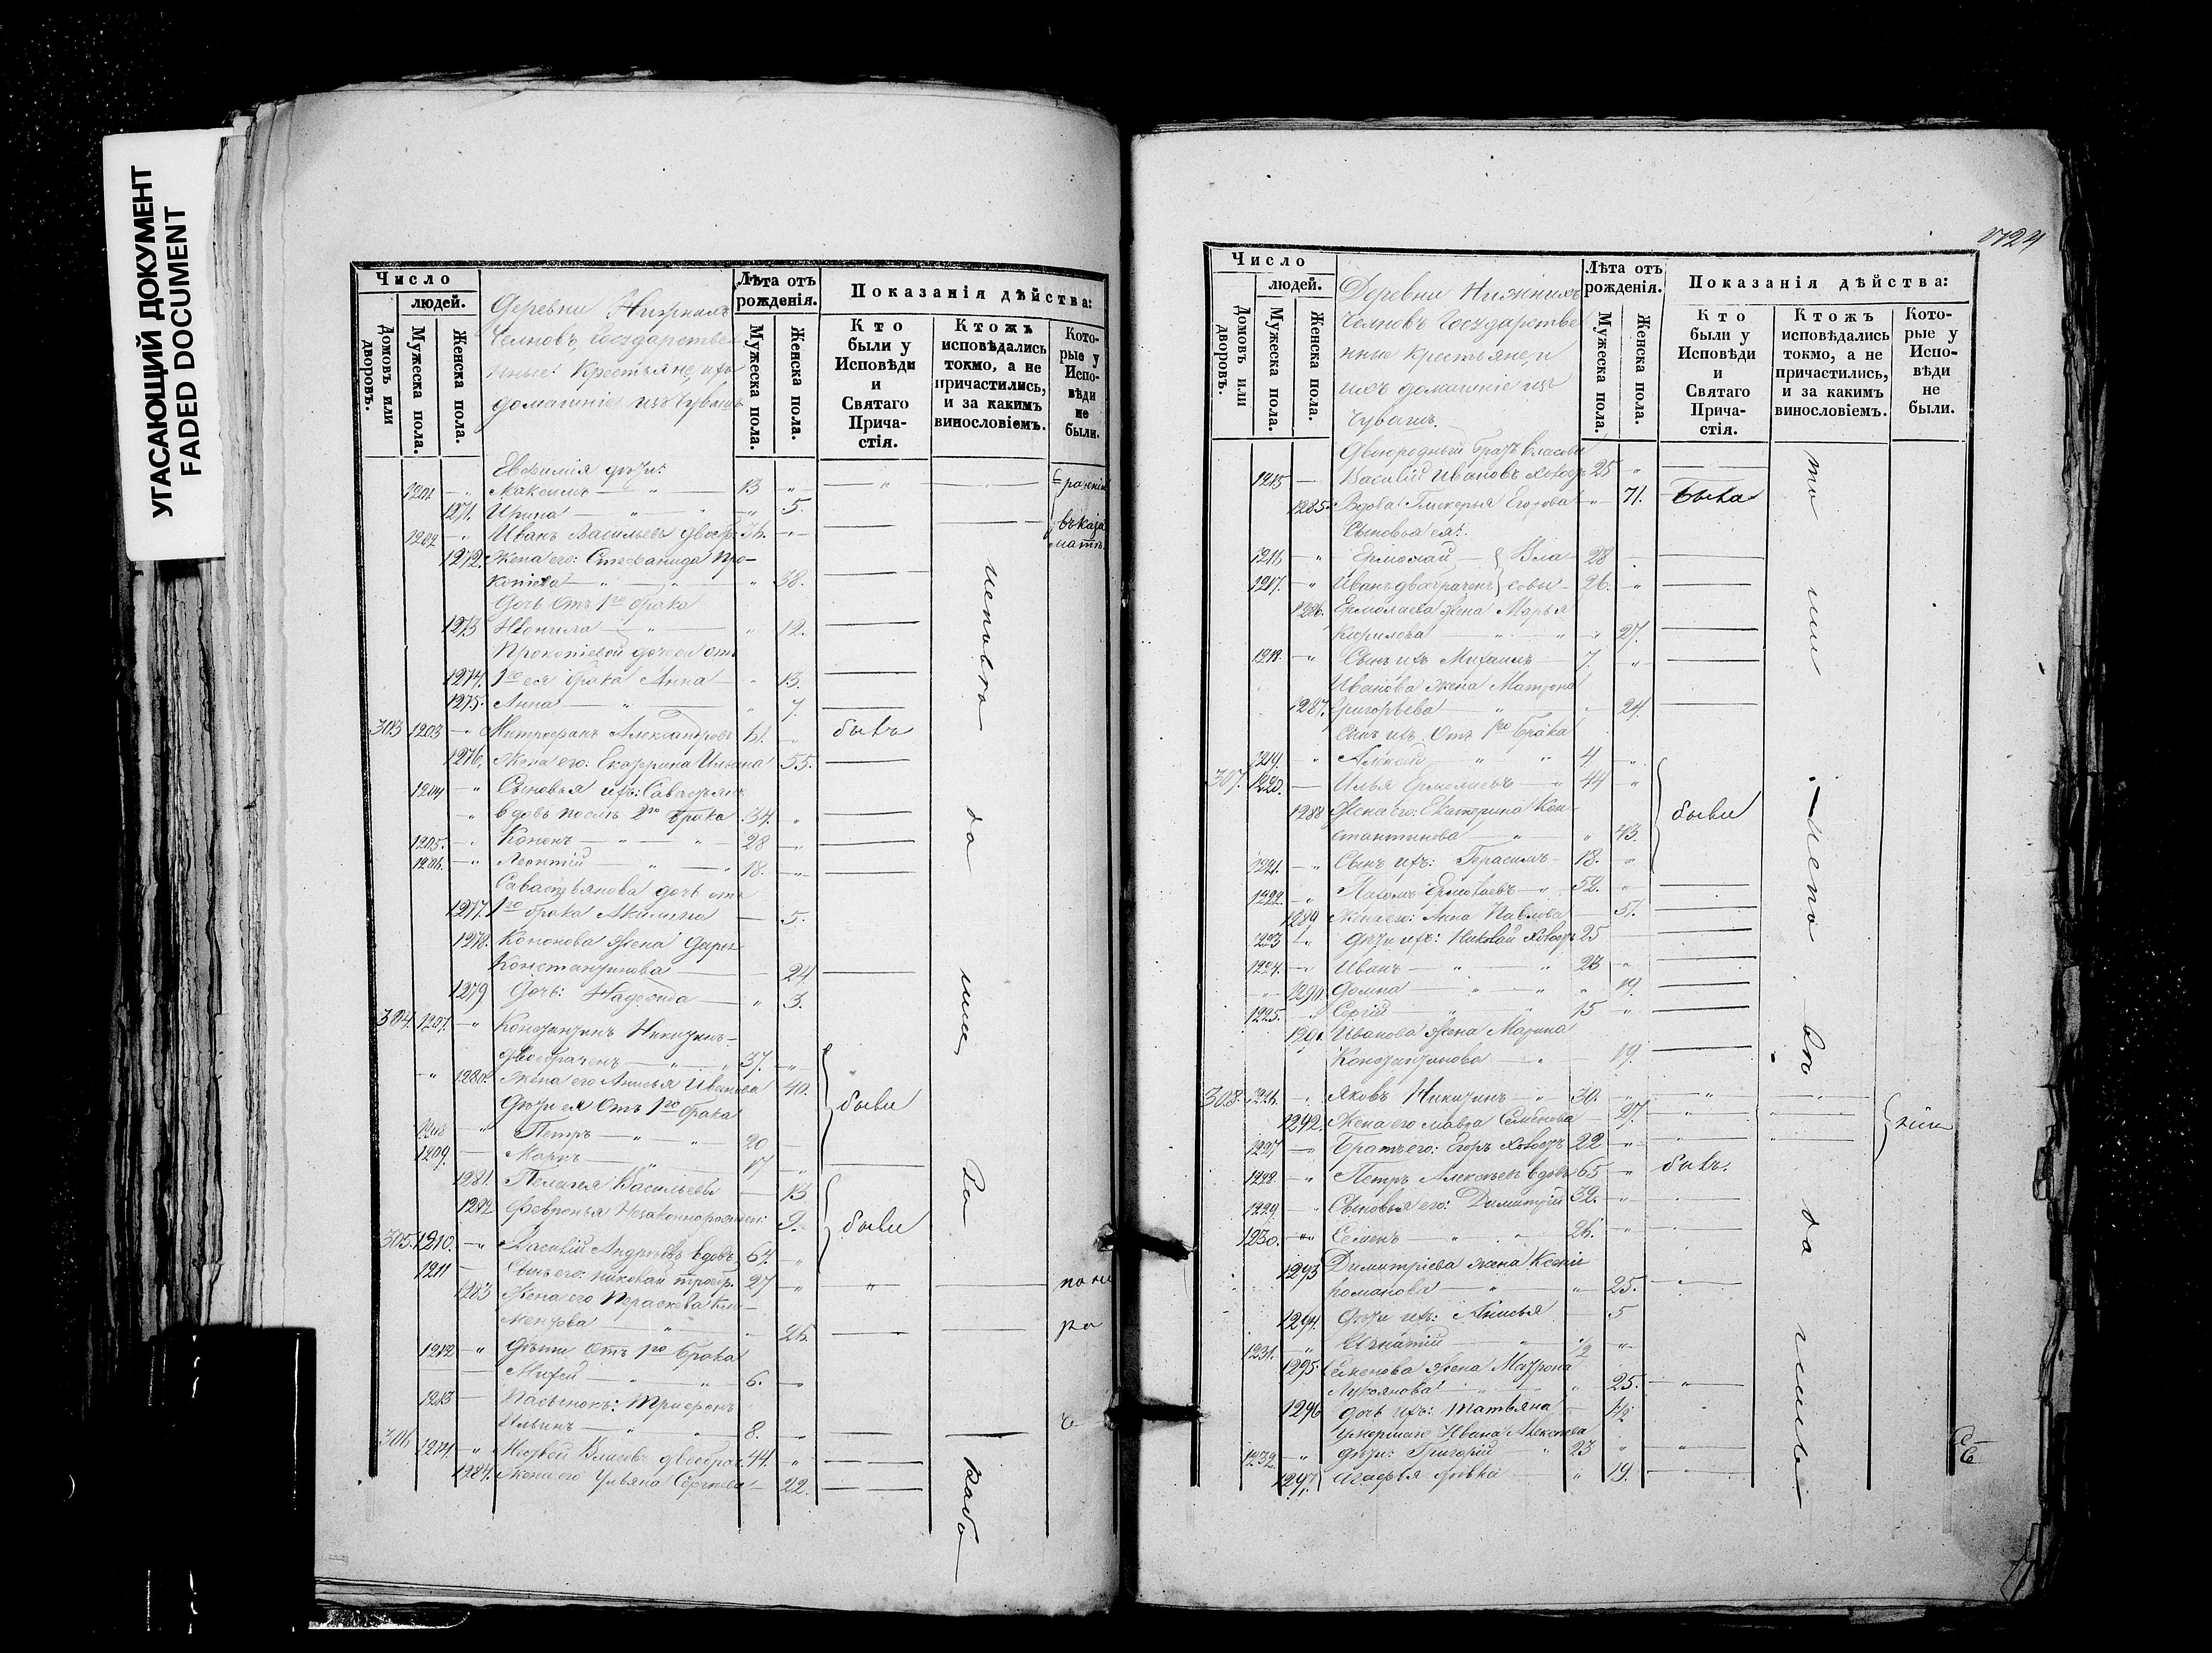 УГАСАЮЩИЙ ДОКУМЕНТ
FADED DOCUMENT
Число
людей.
Домовъ или дворовъ.
Мужеска пола.
Женска пола.
Деревни Нижнихъ
Челновъ, Государствен
ные Крестьяне, и ихъ
домашніе изъ Чувашъ
Лѣта отъ рожденія.
Мужеска пола.
Женска пола.
Показанія дѣйства:
Кто были у Исповѣди и Святаго Причастія.
Ктожъ исповѣдались токмо, а не причастились, и за какимъ винословіемъ.
Которые у Исповѣди не были.
Евѳимія дѣти:
1201 Максимъ 13
1271. Ирина 5.
1202 Иванъ Васильевъ двоебр: 36.
1272. Жена его: Стефанида Про-
копіева 38.
Дочь отъ 1го брака
1273 Неонила 12.
Прокопіевой дочери отъ
1274. 1го ея брака Анна 13.
1275. Анна 7.
303 1203 Митрофанъ Александровъ 61. бывъ
1276. Жена его: Екатерина Ильина 55.
1204 Сыновья ихъ: Савастьянъ
вдовъ послѣ 2го брака 34.
1205. Кононъ 28
1206. Леонтій 18.
Савастьянова дочь отъ
1277. 1го брака Акилина 5.
1278. Кононова жена Дарья
Константинова 24
1279 Дочь: Надежда 3.
304. 1207. Константинъ Никитинъ
двоебраченъ 37.
1280. Жена его Анисья Иванова 40. были
Дѣти ея отъ 1го брака
1208 Петръ 20
1209. Маркъ 17
1281. Пелагея Васильева 13
1282 Февронья Незаконнорожден: 9. были
305. 1210. Василій Андреевъ вдовъ 64.
1211 Сынъ его: Николай троебр. 27
1283 Жена его Параскева Кли-
ментова 26.
1212 Дѣти отъ 1го брака
6.
1213 Пасынокъ: Трифонъ
Ильинъ 8.
306 1214. Матвей Власовъ двоебрач. 44.
1284. Жена его Ульяна Сергеева 22.
исповѣ да ли
Число
людей.
Домовъ или дворовъ.
Мужеска пола.
Женска пола.
Деревни Нижнихъ
Челновъ Государстве
нные Крестьяне, и
ихъ домашніе изъ
Чувашъ.
Лѣта отъ рожденія.
Мужеска пола.
Женска пола.
Показанія дѣйства:
Кто были у Исповѣди и Святаго Причастія.
Ктожъ исповѣдались токмо, а не причастились, и за какимъ винословіемъ.
Которые у Исповѣди не были.
Двоюродный братъ Власовы
1215 Василій Ивановъ холостъ 25
1285. Вдова: Гликерья Егорова 71. была
Сыновья ея:
1216 Ермолай Вла 28
1217. Иванъ двоебраченъ совы 26.
1286. Ермолаева жена Марья
Кирилова 27.
1218. Сынъ ихъ Михаилъ 7.
Иванова жена Матрона
1287. Григорьева 24.
Сынъ ихъ отъ 1го брака
1219. Алексей 4
307. 1220. Илья Ермолаевъ 44
1288 Жена его: Екатерина Кон-
стантинова 43. были
1221. Сынъ ихъ: Герасимъ 18.
1222. Пахомъ Ермолаевъ 52.
1289 Жена его: Анна Павлова 51.
1223 Дѣти ихъ: Николай холостъ 25
1224. Иванъ 23
1290 Домна 19.
1225. Сергій 15
1291. Иванова жена Марина
Константинова 19.
308. 1226. Яковъ Никитинъ 30.
1292. Жена его Мавра Семенова 27.
1227 Братъ его: Егоръ холостъ 22
1228. Петръ Алексѣевъ вдовъ 65 бывъ.
1229 Сыновья его: Димитрій 32.
1230. Семенъ 26.
1293 Димитріева жена Ксенія
Романова 25.
1294. Дѣти ихъ: Анисья 5
1231. Игнатій 1/2
1295 Семенова жена Матрона
Лукоянова 25.
1296 Дочь ихъ: Татьяна 1/2
Умершаго Ивана Алексеева
1232. дѣти: Григорій 23
1297. Агафья дѣвка 19.